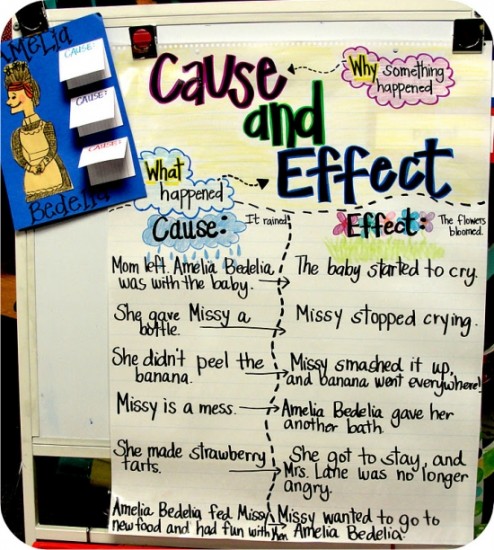 AMELIA
CAUSE!
CAUSE!
CAUSE!
Bedelia
Cause
Why something
happened
and
What
happened
Effect
Cause:
It rained
Effect:
The flowers
bloomed.
Mom left. Amelia Bedelia
was with the baby.
The baby started to cry.
She gave Missy a
bottle.
Missy stopped crying.
She didn't peel the
banana.
Missy smashed it up,
and banana went everywhere!
Missy is a mess.
Amelia Bedelia gave her
another bath.
She made strawberry
tarts.
She got to stay, and
Mrs. Lane was no longer
angry.
Amelia Bedelia fed Missy
new food and had fun with her.
Missy wanted to go to
Amelia Bedelia.